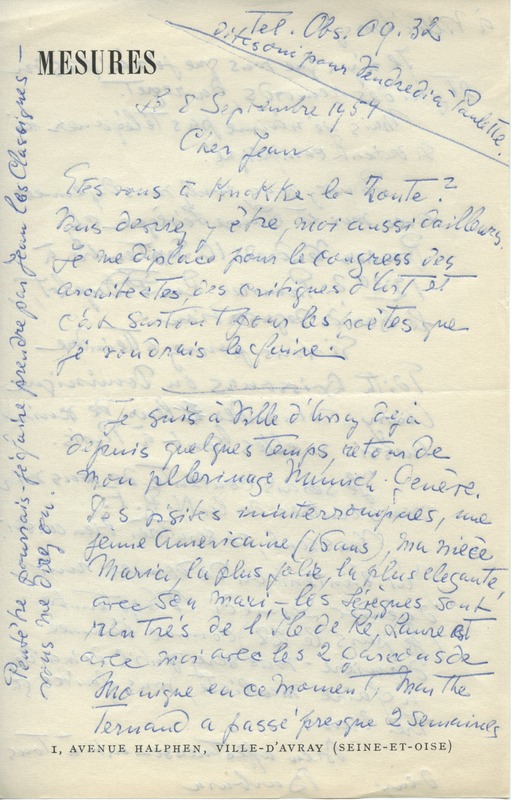 Tel. Obs. 09.32
dites oui pour Vendredi à Paulette.
MESURES
Le 8 Septembre 1954
Cher Jean
Etes vous à Knokke-le-Zoute?
Vous devriez y être, moi aussi d'ailleurs,
je me déplace pour le congress des
architectes, des critiques d'Art et
c'est surtout pour les poètes que
je voudrais le faire!
Je suis à Ville d'Avray déjà
depuis quelques temps, retour de
mon pèlerinage Munich-Genève.
Des visites ininterrompues, une
jeune Américaine (16 ans), ma nièce
Maria, la plus jolie, la plus elegante,
avec son mari, - les sont
rentrés de l'Ile de Ré, Laure est
avec moi avec les 2 garçons de
Monique en ce moment, Marthe
Ternand a passé presque 2 semaines
1, AVENUE HALPHEN, VILLE-D'AVRAY (SEINE-ET-OISE)
Peut être pourrais-je faire prendre par Jean les Classiques —
vous me direz ou.